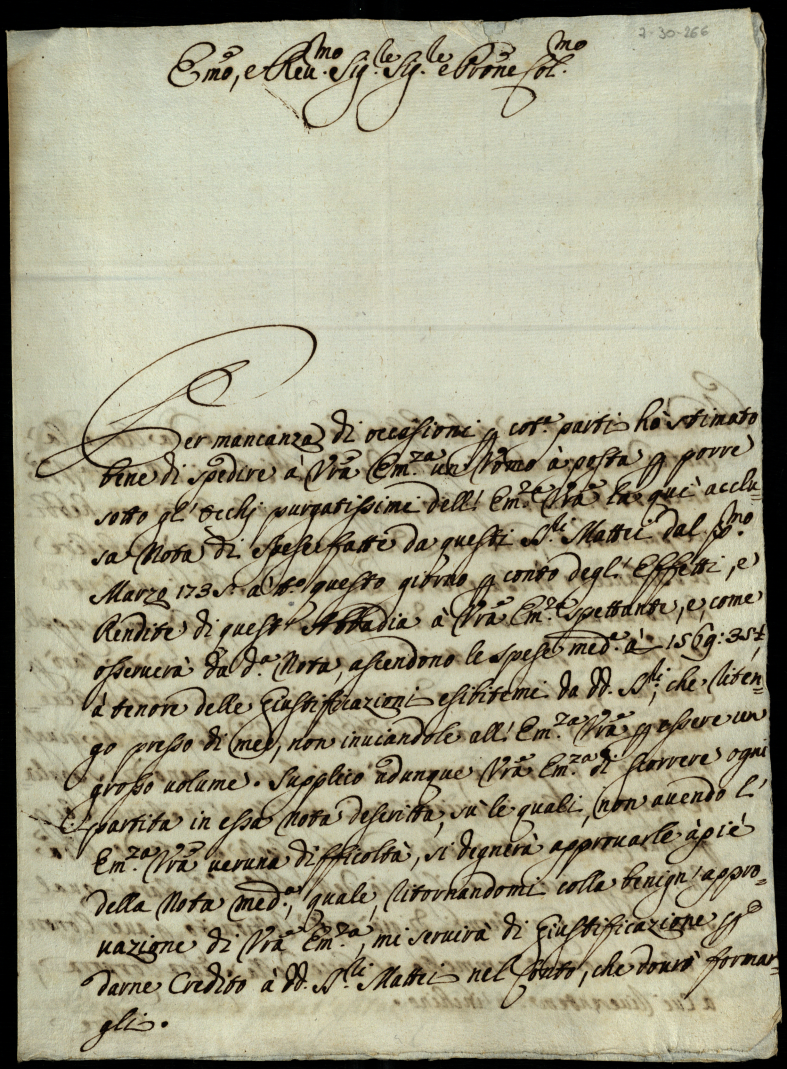 7-30-266
Emo, e Reu.mo Sig.le Sig.le e Prone Col.mo
Per mancanza di occasioni p cot.e parti hò stimato
bene di spedire à Vrã Em.za un Vomo à posta p porre
sotto gl' occhj purgatissimi dell' Em.za Vrã la quì acclu=
sa Nota di Spese fatte da questi SS.li Mattei dal
Marzo à tto questo giorno p conto degl' Effetti, e
Rendite di quest' Abbadia à Vrã Em.za spettante, e, come
osseruerà da d.a Nota, ascendono le spese med.e à 1569:35
à tenore delle Giustificazioni esibitemi da dd. SS.li, che riten=
go presso di me, non inuiandole all' Em.za Vrã p essere un
grosso volume. Supplico adunque Vrã Em.za di scorrere ogni
partita in essa nota descritta, sù le quali, non auendo l'
Em.za Vrã ueruna difficoltà, si degnerà approuarle à piè
della Nota med.a, quale, ritornandomi colla benign' appro=
uazione di Vrã Em.za, mi seruirà di Giustificazione p
darne Credito à dd. SS.li Mattei nel Conto, che dourò formar=
gli.